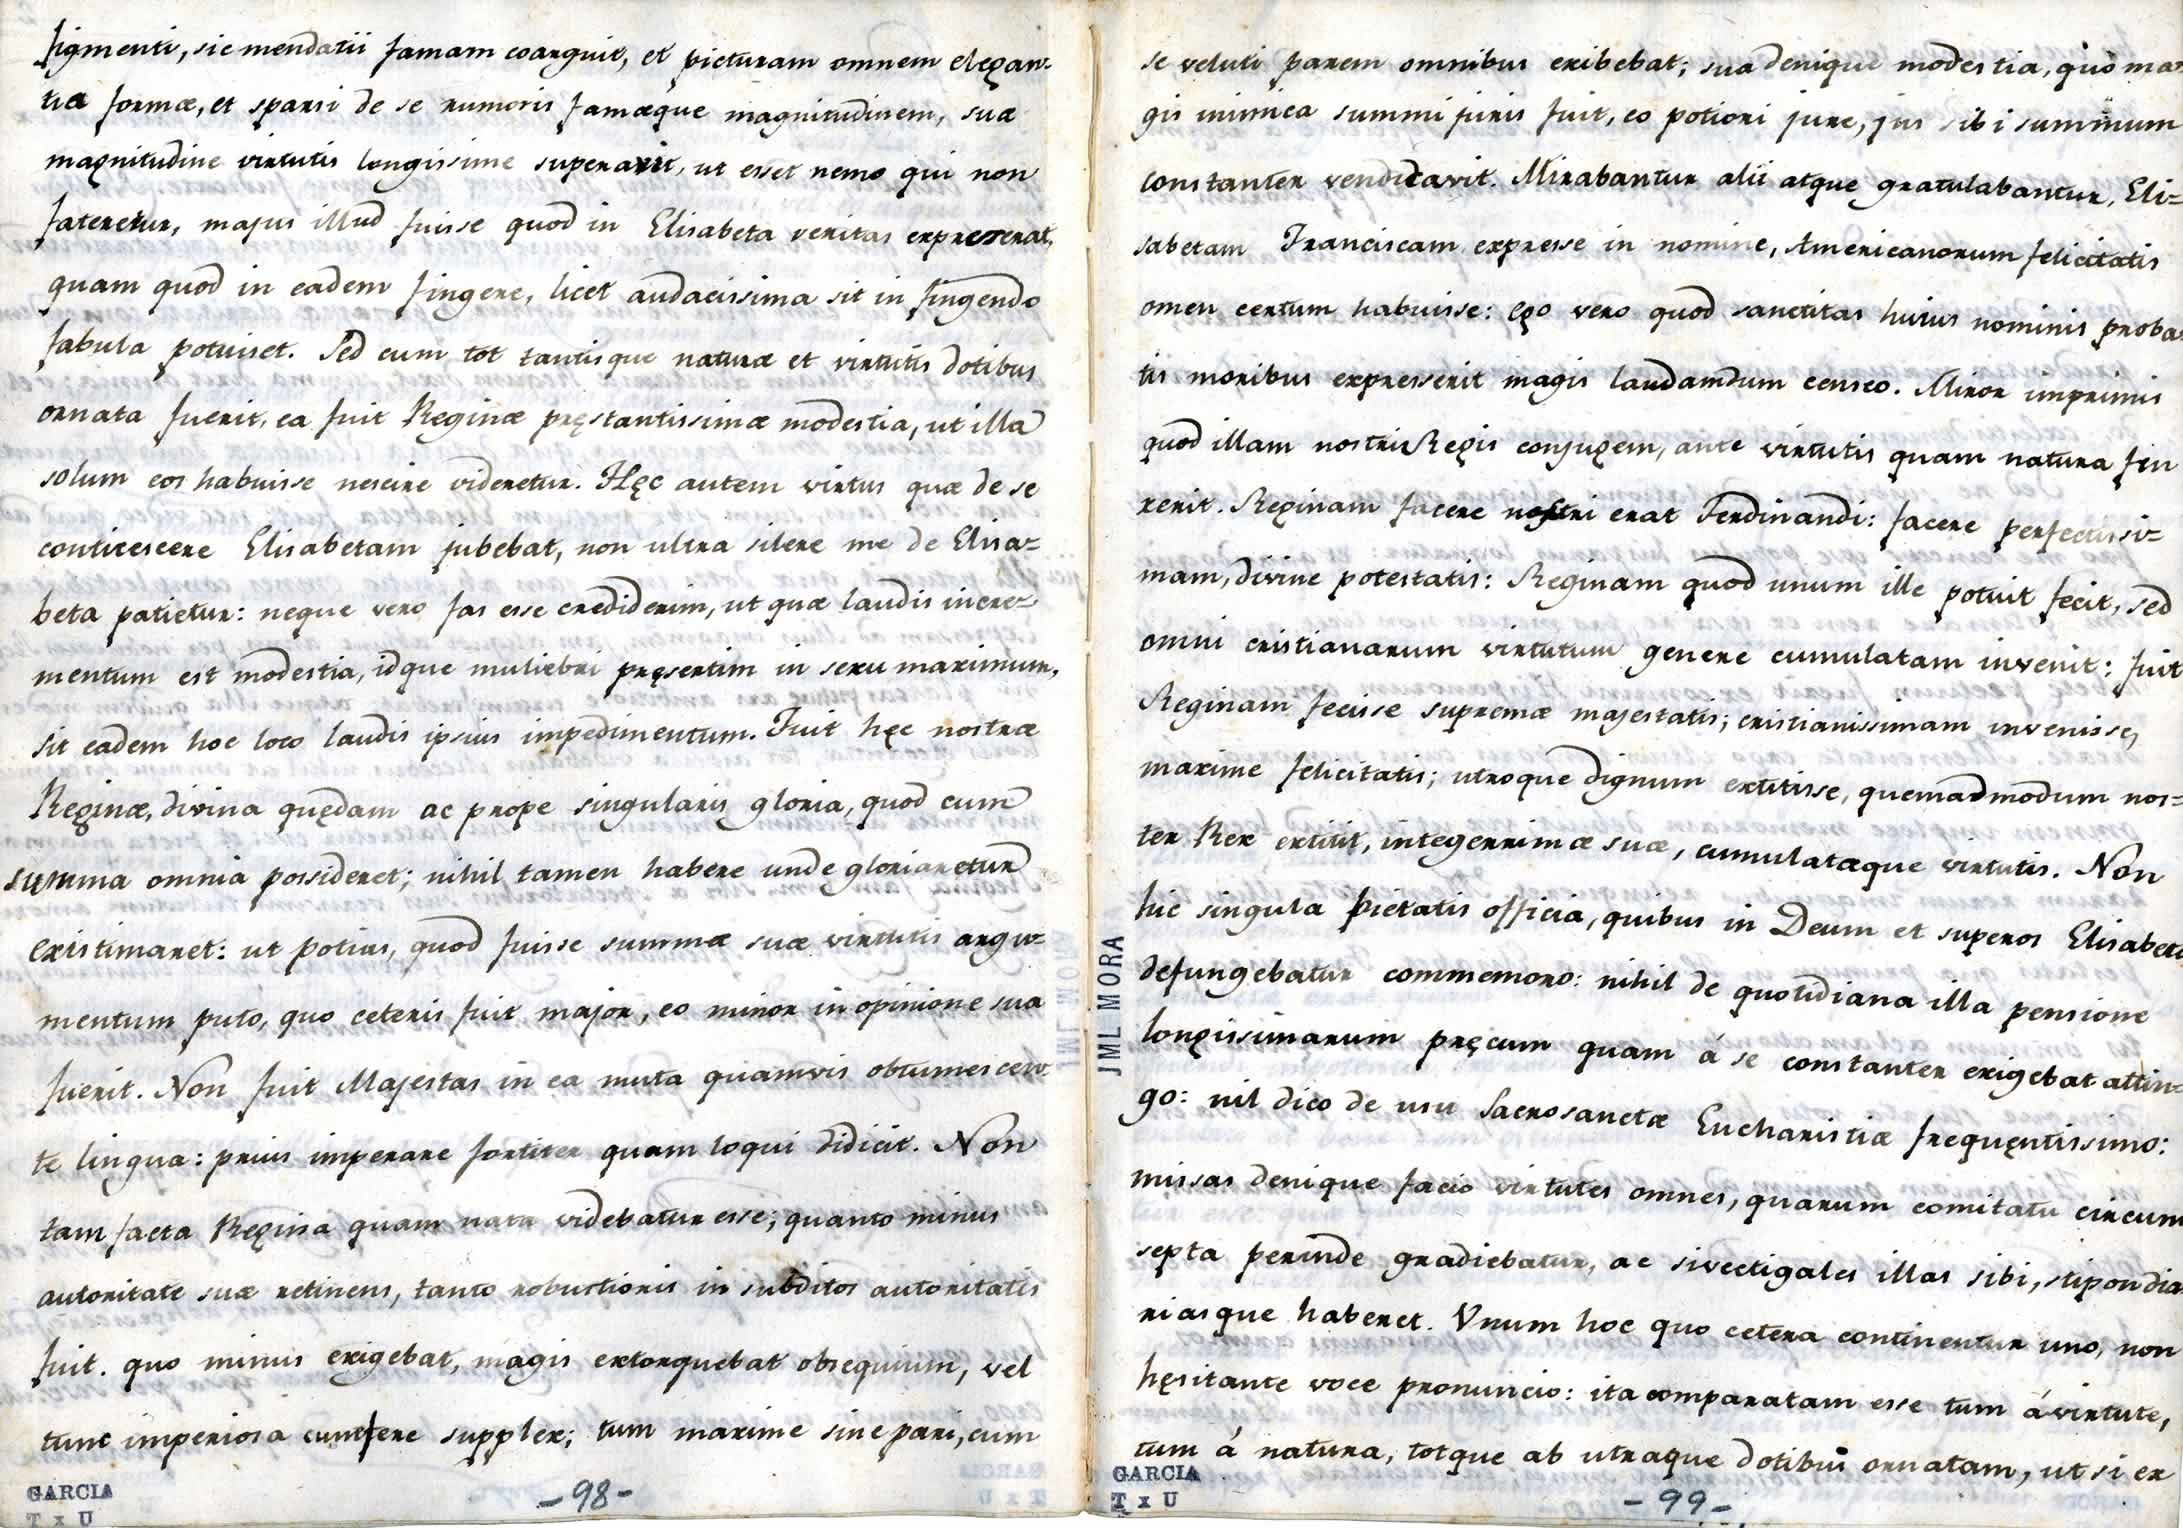 figmenti, sic mendatii famam coarguit, et picturam omnem elegan-
tia formæ, et sparsi de se rumoris famæque magnitudinem, suæ
magnitudine virtutis longissime superavit, ut esset nemo qui non
fateretur, majus illud fuisse quod in Elisabeta veritas expresserat,
quam quod in eadem fingere, licet audacissima sit in fingendo
fabula potuiset. Sed cum tot tantisque naturæ et virtutis dotibus
ornata fuerit, ea fuit Reginæ pręstantissimæ modestia, ut illa
solum eos habuisse nescire videretur. Hęc autem virtus quæ de se
conticescere Elisabetam jubebat, non ultra silere me de Elisa-
beta patietur: neque vero fas esse crediderim, ut quæ laudis incre-
mentum est modestia, idque muliebri pręsertim in sexu maximum,
sit eadem hoc loco laudis ipsius impedimentum. Fuit hęc nostræ
Reginæ, divina quędam ac prope singularis gloria, quod cum
summa omnia possideret; nihil tamen habere unde gloriaretur
existimaret: ut potius, quod fuisse summæ suæ virtutis argu-
mentum puto, quo ceteris fuit major, eo minor in opinione sua
fuerit. Non fuit Majestas in ea muta quamvis obtumescen-
te lingua: prius imperare fortiter quam loqui didicit. Non
tam facta Regina quam nata videbatur esse; quanto minus
autoritate suæ retinens, tanto robustioris in subditos autoritatis
fuit. quo minus exigebat, magis extorquebat obsequium, vel
tunc imperiosa cum fere supplex; tum maxime sine pari, cum
GARCIA
T x U
-98-
se veluti parem omnibus exibebat; sua denique modestia, quò ma-
gis inimica summi juris fuit, eo potiori jure, jus sibi summum
constanter vendicavit. Mirabantur alii atque gratulabantur, Eli=
sabetam Franciscam expresse in nomine, Americanorum felicitatis
omen certum habuisse: ego vero quod sanctitas huius nominis proba-
tis moribus expresserit magis laudamdum censeo. Miror imprimis
quod illam nostri Regis conjugem, ante virtutis quam natura fin
xerit. Reginam facere nostri erat Ferdinandi: facere perfectissi=
mam, divine potestatis: Reginam quod unum ille potuit fecit, sed
omni cristianarum virtutum genere cumulatam invenit: fuit
Reginam fecisse supremæ majestatis; cristianissimam invenisse,
maxime felicitatis; utroque dignum extitisse, quemadmodum nos=
ter Rex extitit, integerrimæ suæ, cumulatæque virtutis. Non
hic singula pietatis officia, quibus in Deum et superos Elisabeta
defungebatur commemoro: nihil de quotidiana illa pensione
longissimarum pręcum quam á se constanter exigebat attin=
go: nil dico de usu Sacrosanctæ Eucharistiæ frequęntissimo:
missas denique facio virtutes omnes, quarum comitatu circum
septa perinde gradiebatur, ac si vectigales illas sibi, stipondia
riasque haberet. Vnum hoc quo cetera continentur uno, non
hęsitante voce pronuncio: ita comparatam esse tum á virtute,
tum á natura, totque ab utraque dotibus ornatam, ut si ex
JML MORA
GARCIA
T x U
-99-